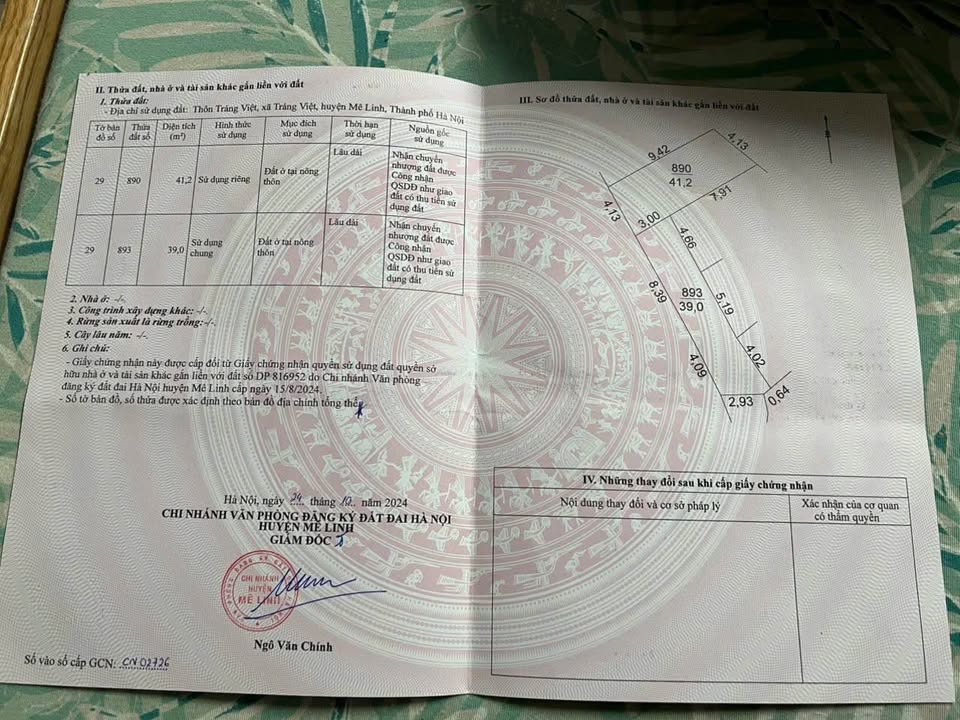 II. Thửa đất, nhà ở và tài sản khác gắn liền với đất
1. Thửa đất:
- Địa chỉ sử dụng đất: Thôn Tráng Việt, xã Tráng Việt, huyện Mê Linh, Thành phố Hà Nội
Tờ bản đồ số | Thửa đất số | Diện tích (m²) | Hình thức sử dụng | Mục đích sử dụng | Thời hạn sử dụng | Nguồn gốc sử dụng
29 | 890 | 41,2 | Sử dụng riêng | Đất ở tại nông thôn | Lâu dài | Nhận chuyển nhượng đất được Công nhận QSDĐ như giao đất có thu tiền sử dụng đất
29 | 893 | 39,0 | Sử dụng chung | Đất ở tại nông thôn | Lâu dài | Nhận chuyển nhượng đất được Công nhận QSDĐ như giao đất có thu tiền sử dụng đất
2. Nhà ở: -/-.
3. Công trình xây dựng khác: -/-.
4. Rừng sản xuất là rừng trồng:-/-.
5. Cây lâu năm: -/-.
6. Ghi chú:
- Giấy chứng nhận này được cấp đổi từ Giấy chứng nhận quyền sử dụng đất quyền sở
hữu nhà ở và tài sản khác gắn liền với đất số DP 816952 do Chi nhánh Văn phòng
đăng ký đất đai Hà Nội huyện Mê Linh cấp ngày 15/8/2024.
- Số tờ bản đồ, số thửa được xác định theo bản đồ địa chính tổng thể.
Hà Nội, ngày 24 tháng 12 năm 2024
CHI NHÁNH VĂN PHÒNG ĐĂNG KÝ ĐẤT ĐAI HÀ NỘI
HUYỆN MÊ LINH
GIÁM ĐỐC
CHI NHÁNH
HUYỆN
MÊ LINH
Ngô Văn Chính
Số vào sổ cấp GCN: CN 02726
III. Sơ đồ thửa đất, nhà ở và tài sản khác gắn liền với đất
9,42
4,13
890
41,2
7,91
4,13
3,00
4,66
8,39
893
39,0
5,19
4,02
4,09
2,93
0,64
IV. Những thay đổi sau khi cấp giấy chứng nhận
Nội dung thay đổi và cơ sở pháp lý | Xác nhận của cơ quan có thẩm quyền